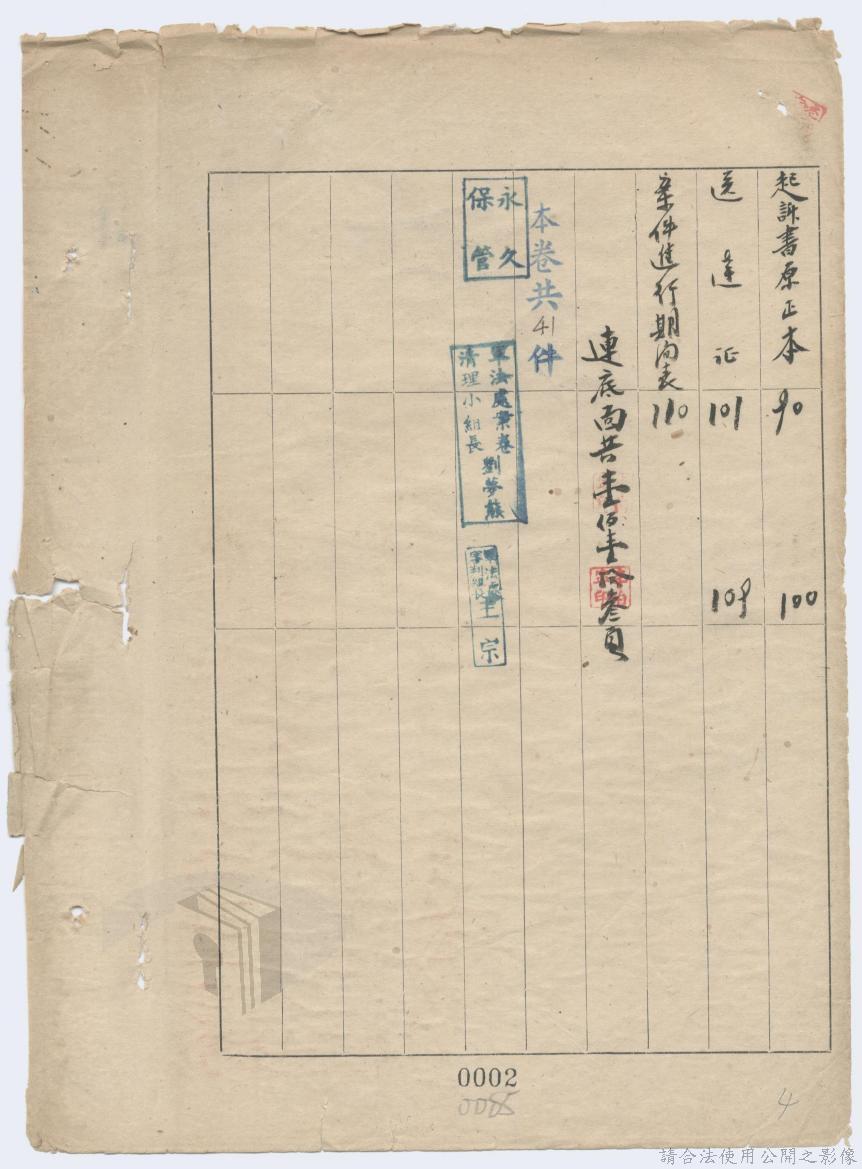 起訴書原正本 90 100
送達証 101 109
案件進行期間表 110
連底面共壹佰壹拾叁頁
本卷共41件
永久
保管
軍法處案卷
清理小組長 劉夢熊
王宗
0002
0085
4
請合法使用公開之影像